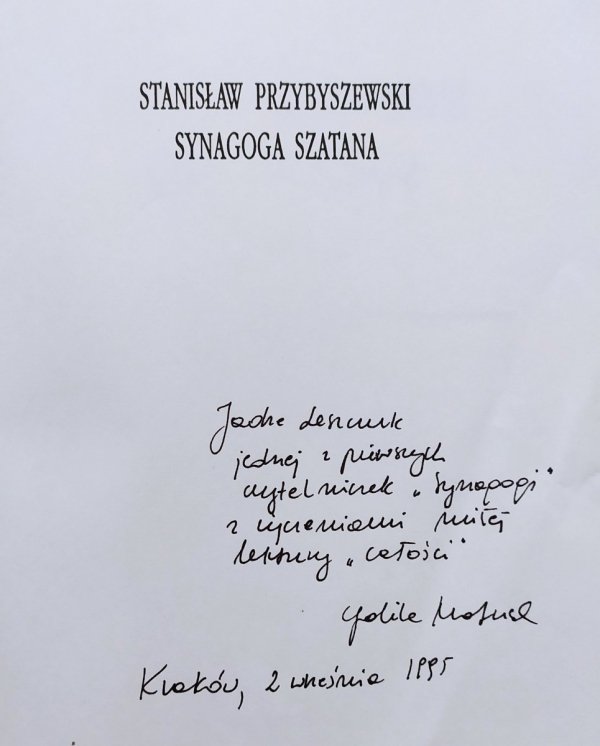 STANISŁAW PRZYBYSZEWSKI
SYNAGOGA SZATANA
jednej z pierwszych
czytelniczek „Synagogi”
z życzeniami miłej
lektury „całości”
Kraków, 2 września 1995